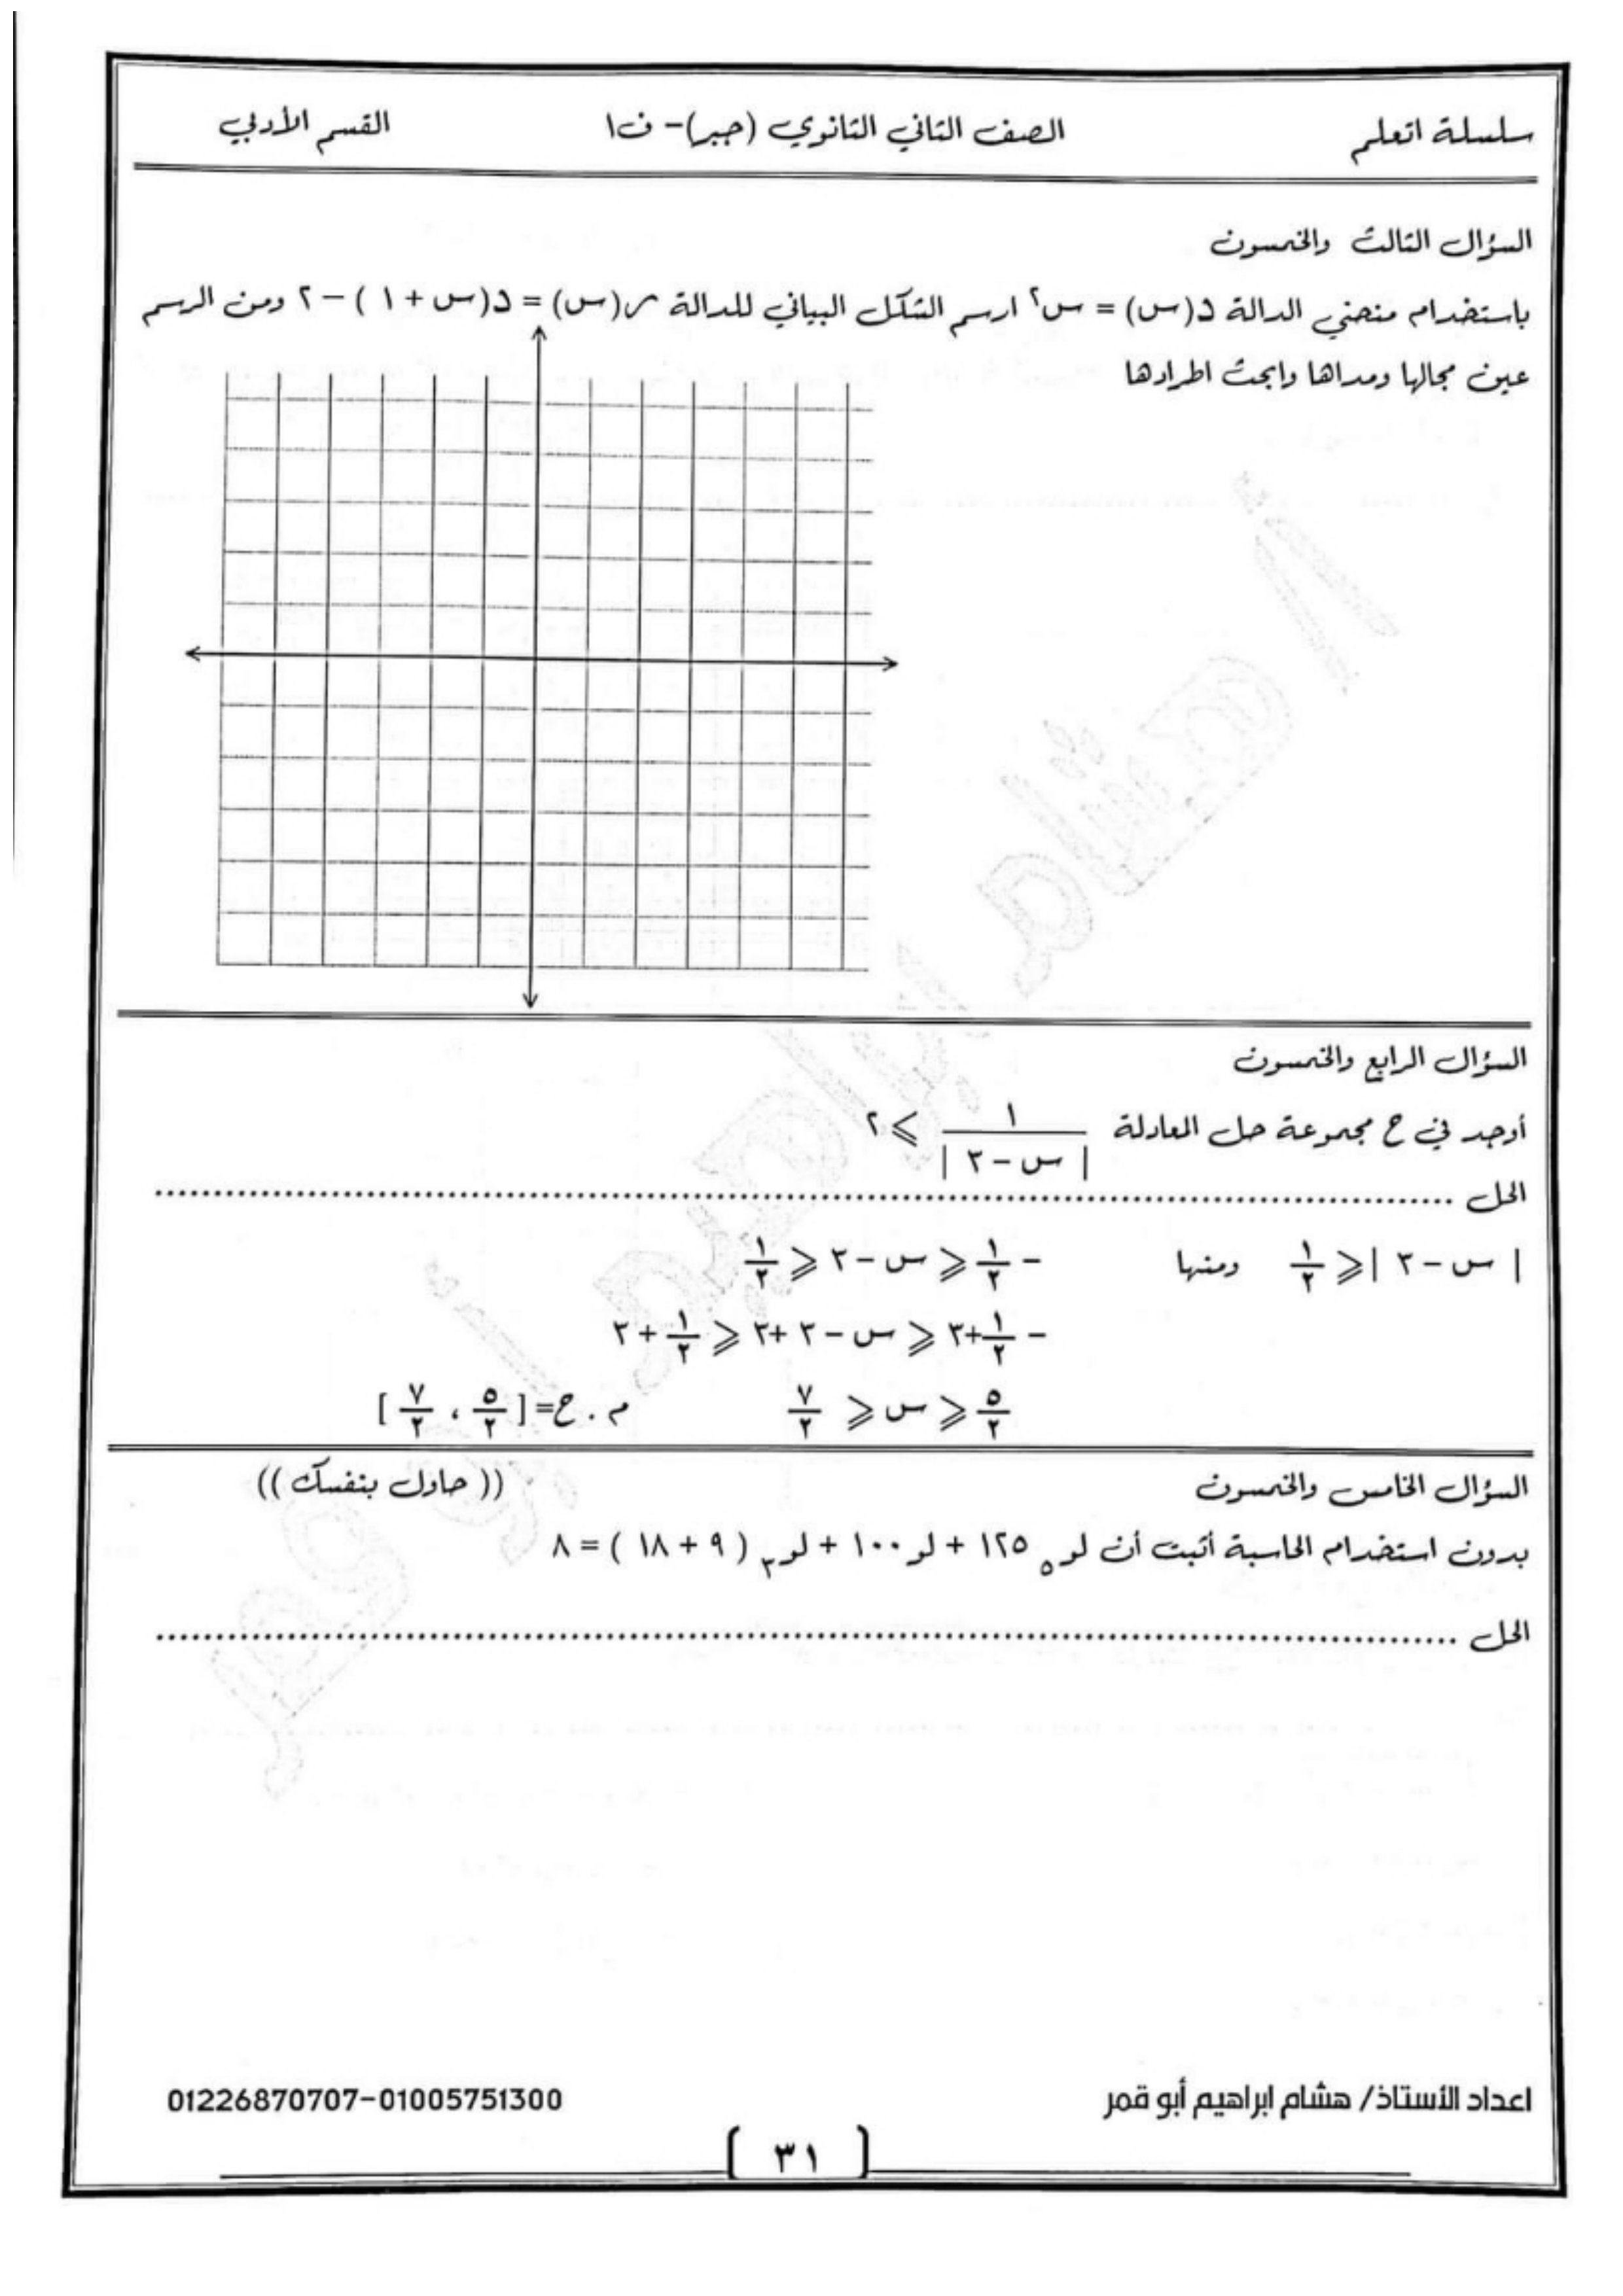 سلسلة اتعلم الصف الثاني الثانوي (جبر)- ف١ القسم الأدبي
السؤال الثالث والخمسون
باستخدام منحني الدالة د(س) = س٢ ارسم الشكل البياني للدالة ر(س) = د(س + ١ ) – ٢ ومن الرسم
عين مجالها ومداها وابحث اطرادها
السؤال الرابع والخمسون
أوجد في ح مجموعة حل المعادلة ١ / | س – ٣ | ⩾ ٢
الحل ........................................................................
| س – ٣ | ⩽ ١/٢ ومنها – ١/٢ ⩽ س – ٣ ⩽ ١/٢
– ١/٢ +٣ ⩽ س – ٣ +٣ ⩽ ١/٢ + ٣
٥/٢ ⩽ س ⩽ ٧/٢ م . ح= [ ٥/٢ ، ٧/٢ ]
السؤال الخامس والخمسون (( حاول بنفسك ))
بدون استخدام الحاسبة أثبت أن لو٥ ١٢٥ + لو ١٠٠ + لو٣ ( ٩ + ١٨ ) = ٨
الحل ........................................................................
اعداد الأستاذ/ هشام ابراهيم أبو قمر 01226870707-01005751300
[ ٣١ ]